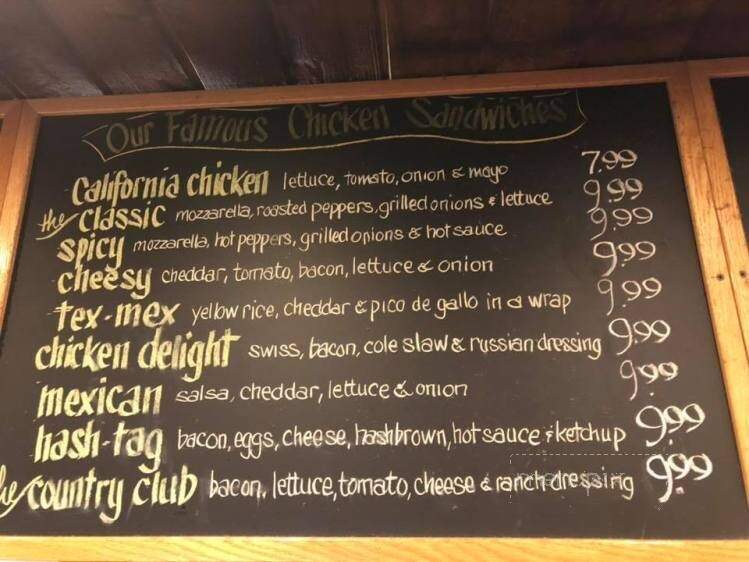 Our Famous Chicken Sandwiches
California chicken lettuce, tomato, onion & mayo 7.99
the classic mozzarella, roasted peppers, grilled onions & lettuce 9.99
spicy mozzarella, hot peppers, grilled onions & hot sauce 9.99
cheesy cheddar, tomato, bacon, lettuce & onion 9.99
tex-mex yellow rice, cheddar & pico de gallo in a wrap 9.99
chicken delight swiss, bacon, cole slaw & russian dressing 9.99
mexican salsa, cheddar, lettuce & onion 9.99
hash-tag bacon, eggs, cheese, hashbrown, hot sauce & ketchup 9.99
the country club bacon, lettuce, tomato, cheese & ranch dressing 9.99